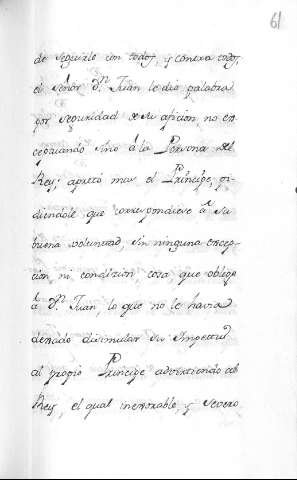 61
de seguirle con todos, y contra todos,
el Señor Dn. Juan le dió palabra
por seguridad de su aficion, no ex-
ceptuando sino á la Persona del
Rey; apretó mas el Príncipe, pi-
diendole que correspondiese á su
buena voluntad, sin ninguna excep-
cion, ni condicion, cosa que obligó
á Dn. Juan, lo que no le havia
al propio Príncipe advertiendo del
Rey, el qual inexorable, y severo